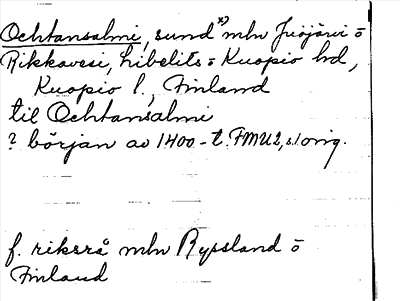 Ochtansalmi, sund x) mln Juojärvi o
Rikkavesi, Libelits o Kuopio hd,
Kuopio l., Finland
til Ochtansalmi
? början av 1400-t. FMU2, s 1 orig.
f. riksrå mln Ryssland o
Finland